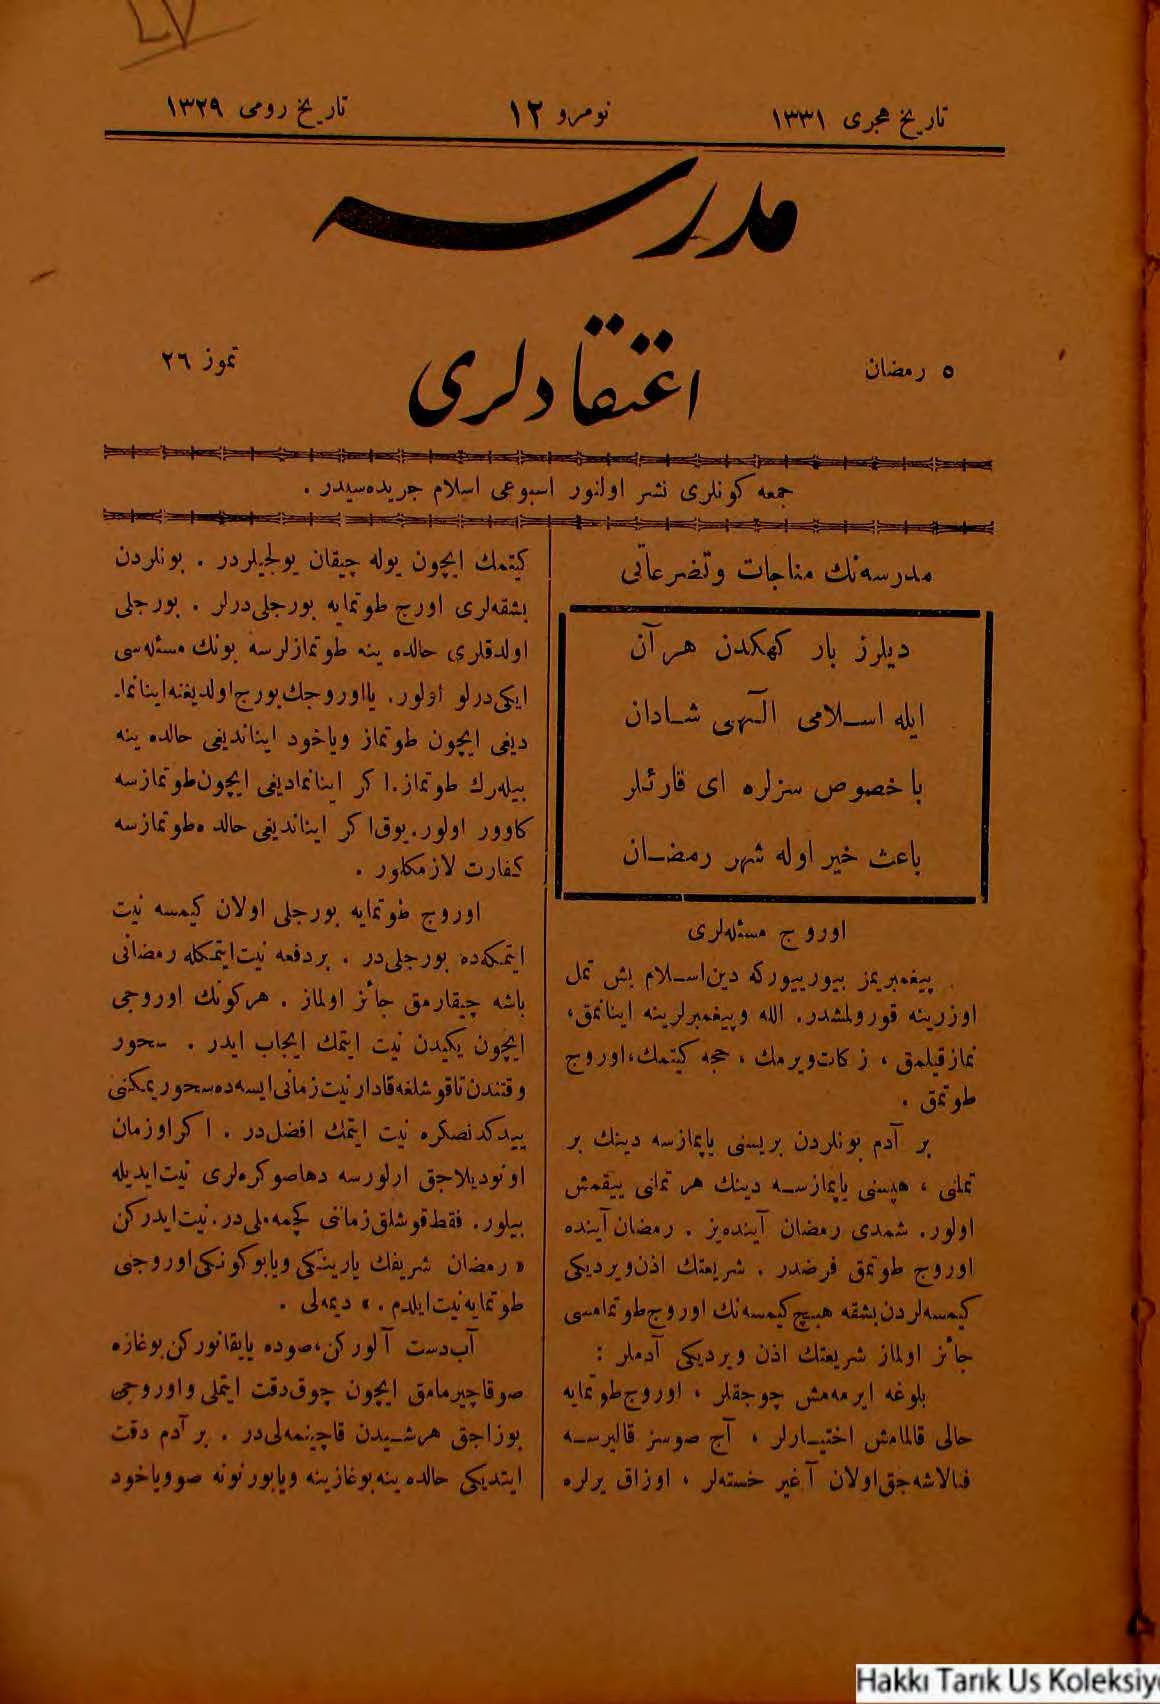 تاریخ هجری ١٣٣١ نومرو ١٢ تاریخ رومی ١٣٢٩
مدرسه
اعتقادلری
٥ رمضان
تموز ٢٦
جمعه کونلری نشر اولنور اسبوعی اسلام جریده‌سیدر .
مدرسه‌نك مناجات وتضرعاتی
دیلرز بار كهكدن هر آن
ایله اسـلامی الـٓهی شـادان
باخصوص سزلره ای قارئلر
باعث خیر اوله شهر رمضـان
اوروج مسئله‌لری
پیغمبریمز بیورییورکه دین اسـلام بش تمل
اوزرینه قورولمشدر. الله وپیغمبرلرینه اینانمق،
نماز قیلمق ، زکات ویرمك ، حجه کیتمك، اوروج
طوتمق .
بر آدم بونلردن بریسنی یاپمازسه دینك بر
تملنی ، هپسنی یاپمازسـه دینك هر تملنی ییقمش
اولور. شمدی رمضان آینده‌یز . رمضان آینده
اوروج طوتمق فرضدر . شریعتك اذن ویردیکی
کیمسه‌لردن بشقه هیچ کیمسه‌نك اوروج طوتمامسی
جائز اولماز شریعتك اذن ویردیکی آدملر :
بلوغه ایرمه‌مش چوجقلر ، اوروج طوتمایه
حالی قالمامش اختیـارلر ، آج صوسز قالیرسـه
فنالاشه‌جق اولان آغیر خسته‌لر ، اوزاق یرلره
کیتمك ایچون یوله چیقان یولجیلردر . بونلردن
بشقه‌لری اورج طوتمایه بورجلی‌درلر . بورجلی
اولدقلری حالده ینه طوتمازلرسه بونك مسئله‌سی
ایکی درلو اولور. یا اوروجك بورج اولدیغنه اینانما-
دیغی ایچون طوتماز ویاخود ایناندیغی حالده ینه
بیله‌رك طوتماز. اکر اینانمادیغی ایچون طوتمازسه
کاوور اولور. یوق اکر ایناندیغی حالده طوتمازسه
کفارت لازمکلور .
اوروج طوتمایه بورجلی اولان کیمسه نیت
ایتمکه‌ده بورجلی‌در . بر دفعه نیت ایتمکله رمضانی
باشه چیقارمق جائز اولماز . هر کونك اوروجی
ایچون یکیدن نیت ایتمك ایجاب ایدر . سحور
وقتندن تا قوشلغه قادار نیت زمانی ایسه‌ده سحور یمکنی
ییدکدنصکره نیت ایتمك افضل‌در . اکر اوزمان
اونودیلاجق ارلورسه دها صوکره‌لری نیت ایدیله
بیلور. فقط قوشلق زماننی کچمه‌ملی‌در. نیت ایدرکن
« رمضان شریفك یارینکی ویا بو کونکی اوروجنی
طوتمایه نیت ایلدم . » دیمه‌لی .
آب‌دست آلورکن، صوده یایقانورکن بوغازه
صو قاچیرمامق ایچون چوق دقت ایتملی و اوروجی
بوزاجق هر شـیدن قاچینمه‌لی‌در . بر آدم دقت
ایتدیکی حالده ینه بوغازینه ویا بورنونه صو ویاخود
Hakkı Tarık Us Koleksiyo